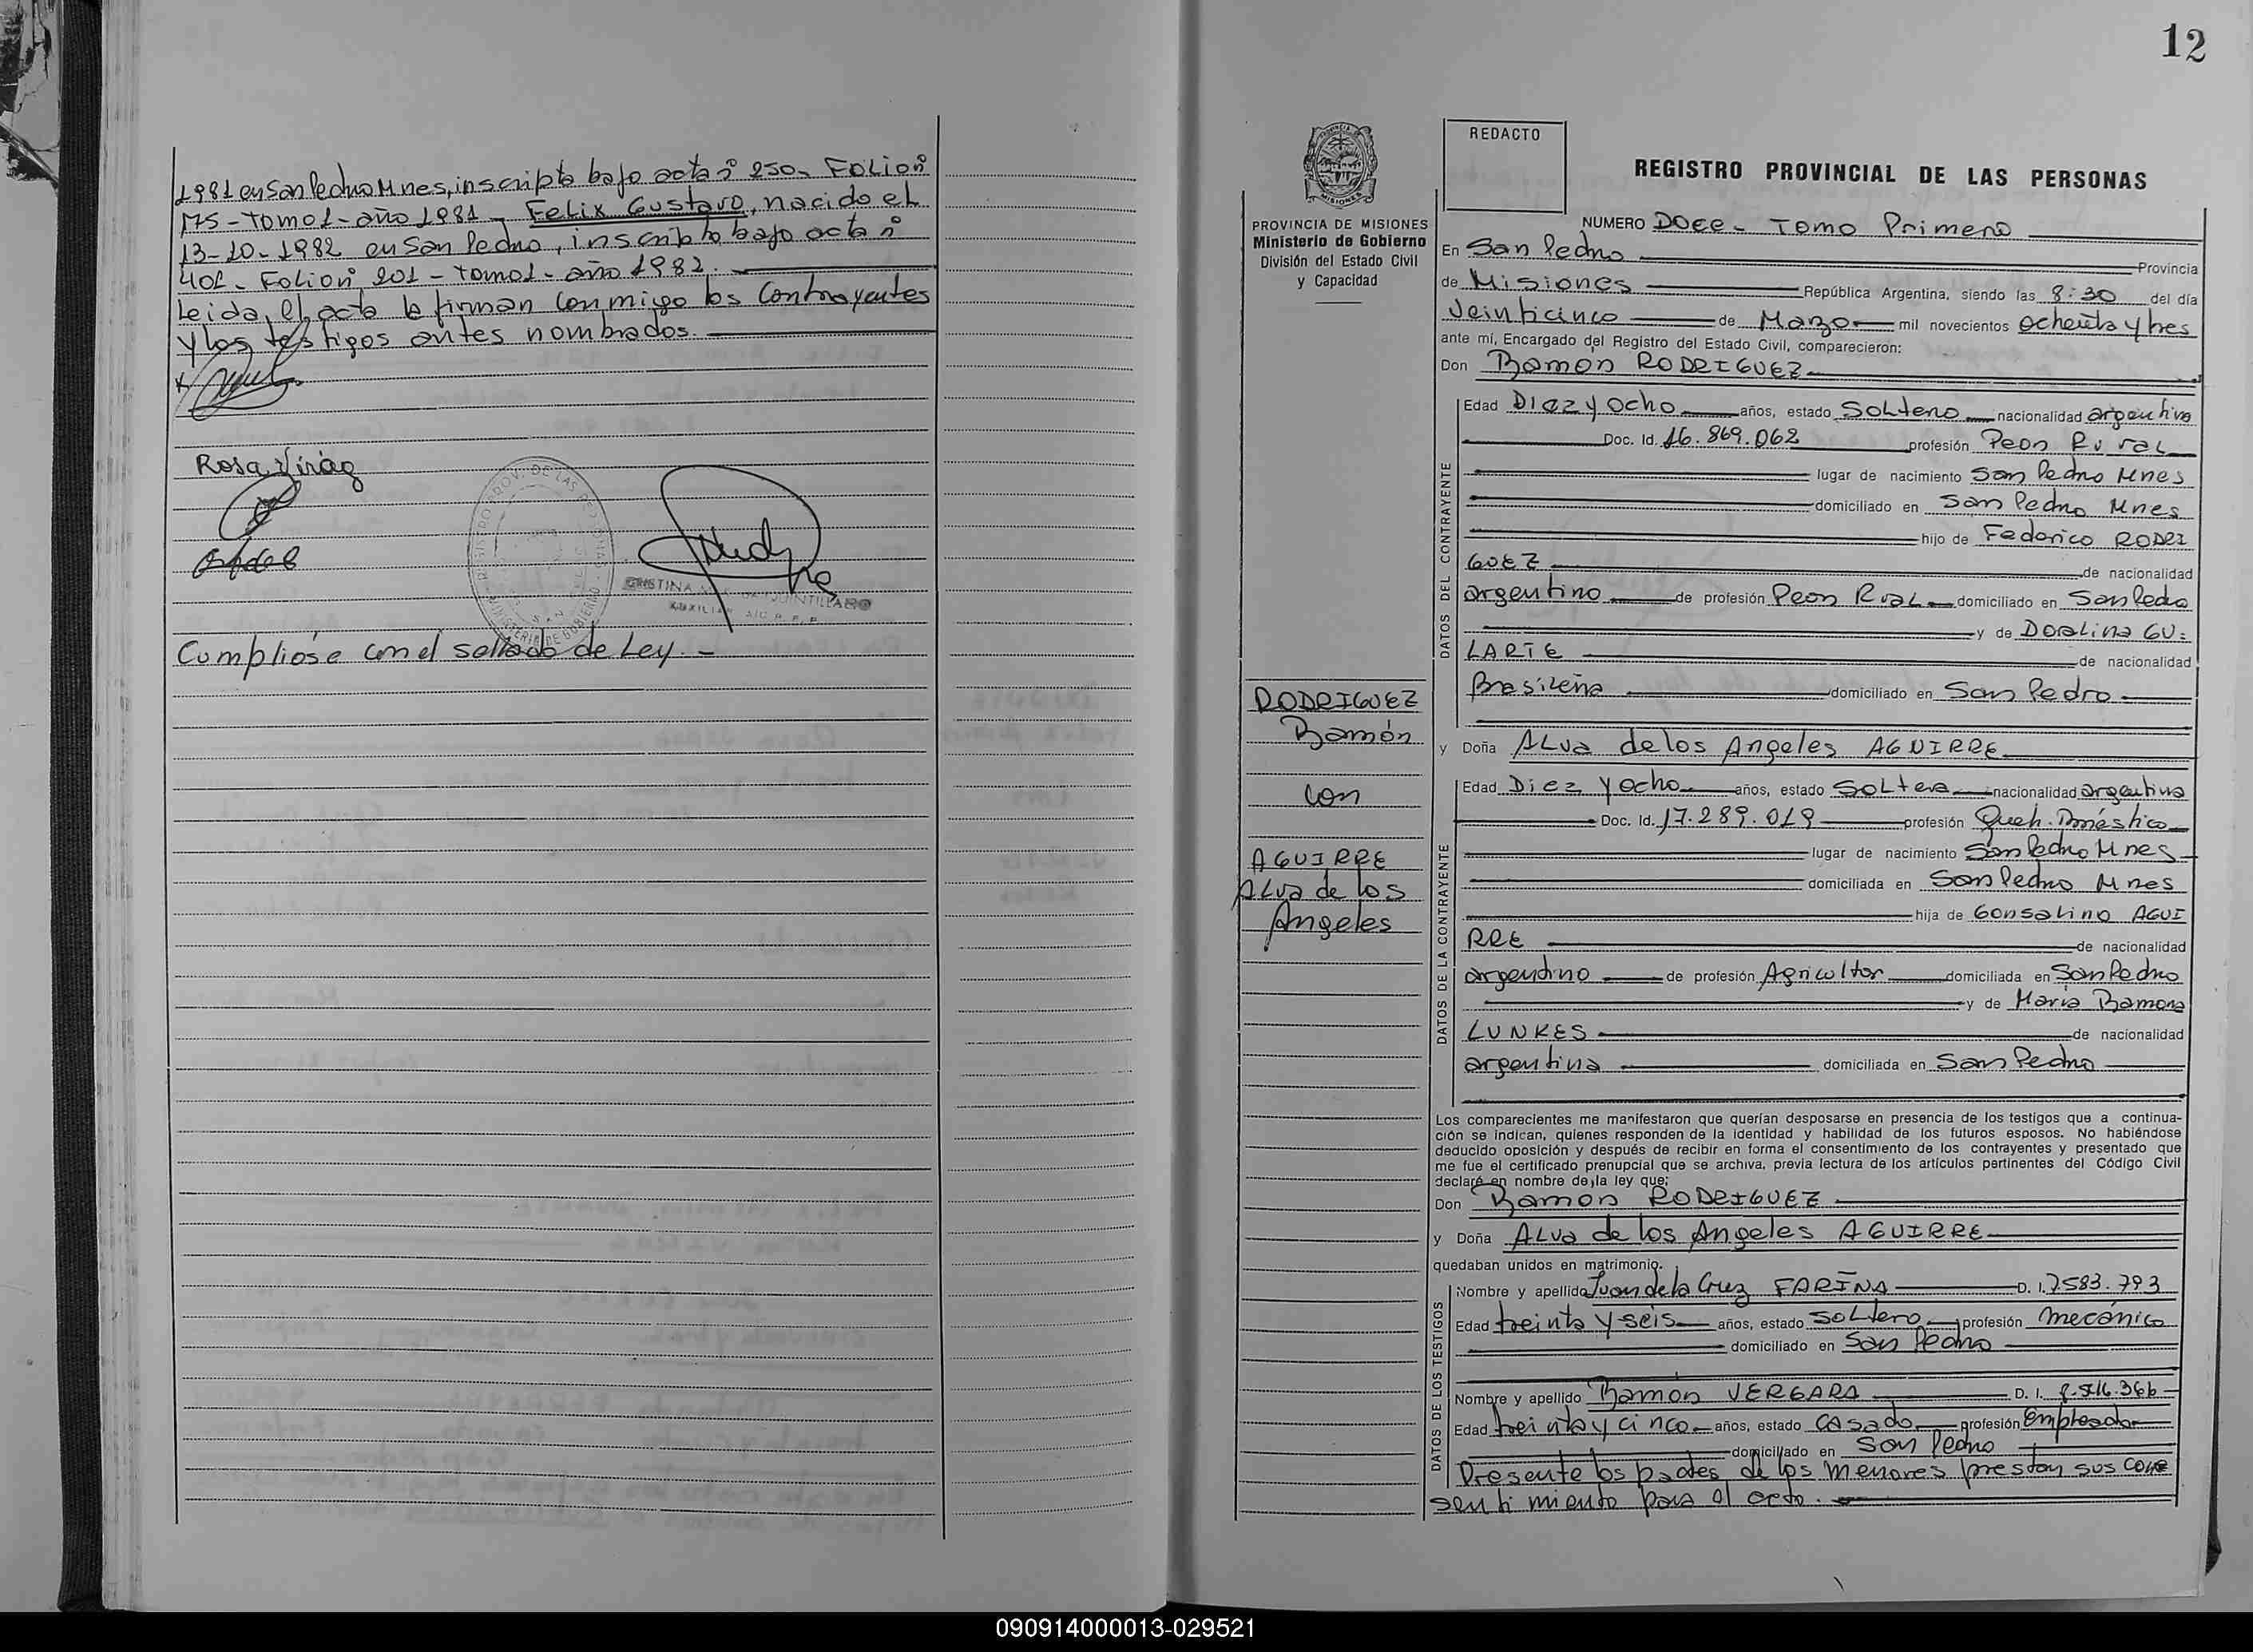 1981 en San Pedro Mnes, inscripto bajo acta nº 250- Folio nº
175 - Tomo 1 - año 1981 - Felix Gustavo, nacido el
13-10-1982 en San Pedro, inscripto bajo acta nº
401 - Folio nº 201 - Tomo 1 - año 1982.
Leida el acta la firman conmigo los Contrayentes
y los testigos antes nombrados.
Rosa Virág
CRISTINA QUINTILLANO
AUXILIAR A/C R. P. P.
Cumpliose con el sellado de Ley. -
12
REDACTO
REGISTRO PROVINCIAL DE LAS PERSONAS
PROVINCIA DE MISIONES
Ministerio de Gobierno
División del Estado Civil
y Capacidad
NUMERO Doce - Tomo Primero
En San Pedro Provincia
de Misiones República Argentina, siendo las 8:30 del día
Veinticinco de Marzo mil novecientos ochenta y tres
ante mí, Encargado del Registro del Estado Civil, comparecieron:
Don Ramón RODRIGUEZ
DATOS DEL CONTRAYENTE
Edad Diez y ocho años, estado Soltero nacionalidad argentina
Doc. Id. 16.869.062 profesión Peon Rural
lugar de nacimiento San Pedro Mnes
domiciliado en San Pedro Mnes
hijo de Federico RODRI
GUEZ de nacionalidad
argentino de profesión Peon Rral domiciliado en San Pedro
y de Doralina GU=
LARTE de nacionalidad
Brasileña domiciliado en San Pedro
RODRIGUEZ
Ramón
con
AGUIRRE
Alva de los
Angeles
y Doña Alva de los Angeles AGUIRRE
DATOS DE LA CONTRAYENTE
Edad Diez y ocho años, estado Soltera nacionalidad argentina
Doc. Id. 17.289.019 profesión Queh. Doméstico
lugar de nacimiento San Pedro Mnes
domiciliada en San Pedro Mnes
hija de Gonsalino AGUI
RRE de nacionalidad
argentino de profesión Agricultor domiciliada en San Pedro
y de María Ramona
LUNKES de nacionalidad
argentina domiciliada en San Pedro
Los comparecientes me manifestaron que querían desposarse en presencia de los testigos que a continua-
ción se indican, quienes responden de la identidad y habilidad de los futuros esposos. No habiéndose
deducido oposición y después de recibir en forma el consentimiento de los contrayentes y presentado que
me fue el certificado prenupcial que se archiva, previa lectura de los artículos pertinentes del Código Civil
declaré en nombre de la ley que:
Don Ramon RODRIGUEZ
y Doña Alva de los Angeles AGUIRRE
quedaban unidos en matrimonio.
DATOS DE LOS TESTIGOS
Nombre y apellido Juan de la Cruz FARIÑA D. I. 7583.793
Edad treinta y seis años, estado Soltero profesión mecánico
domiciliado en San Pedro
Nombre y apellido Ramon VERGARA D. I.
Edad treinta y cinco años, estado Casado profesión Empleado
domiciliado en San Pedro
Presente los padres de los menores prestan sus con
sentimiento para el acto.
090914000013-029521